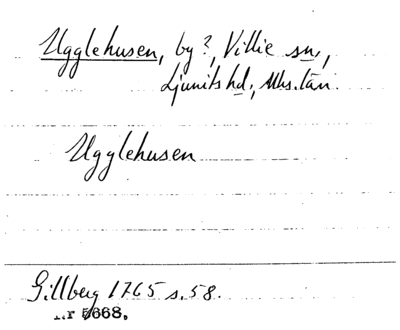 Ugglehusen, by?, Villie sn,
Ljunits hd, Mhs. län.
Ugglehusen
Gillberg 1765 s. 58.
Nr 5668.